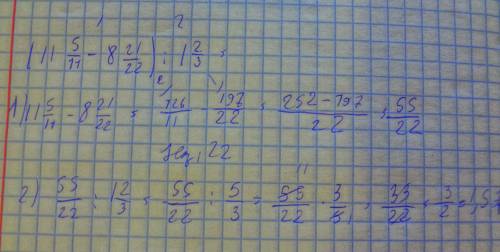 1 2
(11 5/11 - 8 21/22) : 1 2/3 =
1) 11 5/11 - 8 21/22 = 126/11 - 197/22 = 252-197/22 = 55/22
22
2) 55/22 : 1 2/3 = 55/22 : 5/3 = 55/22 · 3/5 = 33/22 = 3/2 = 1,5